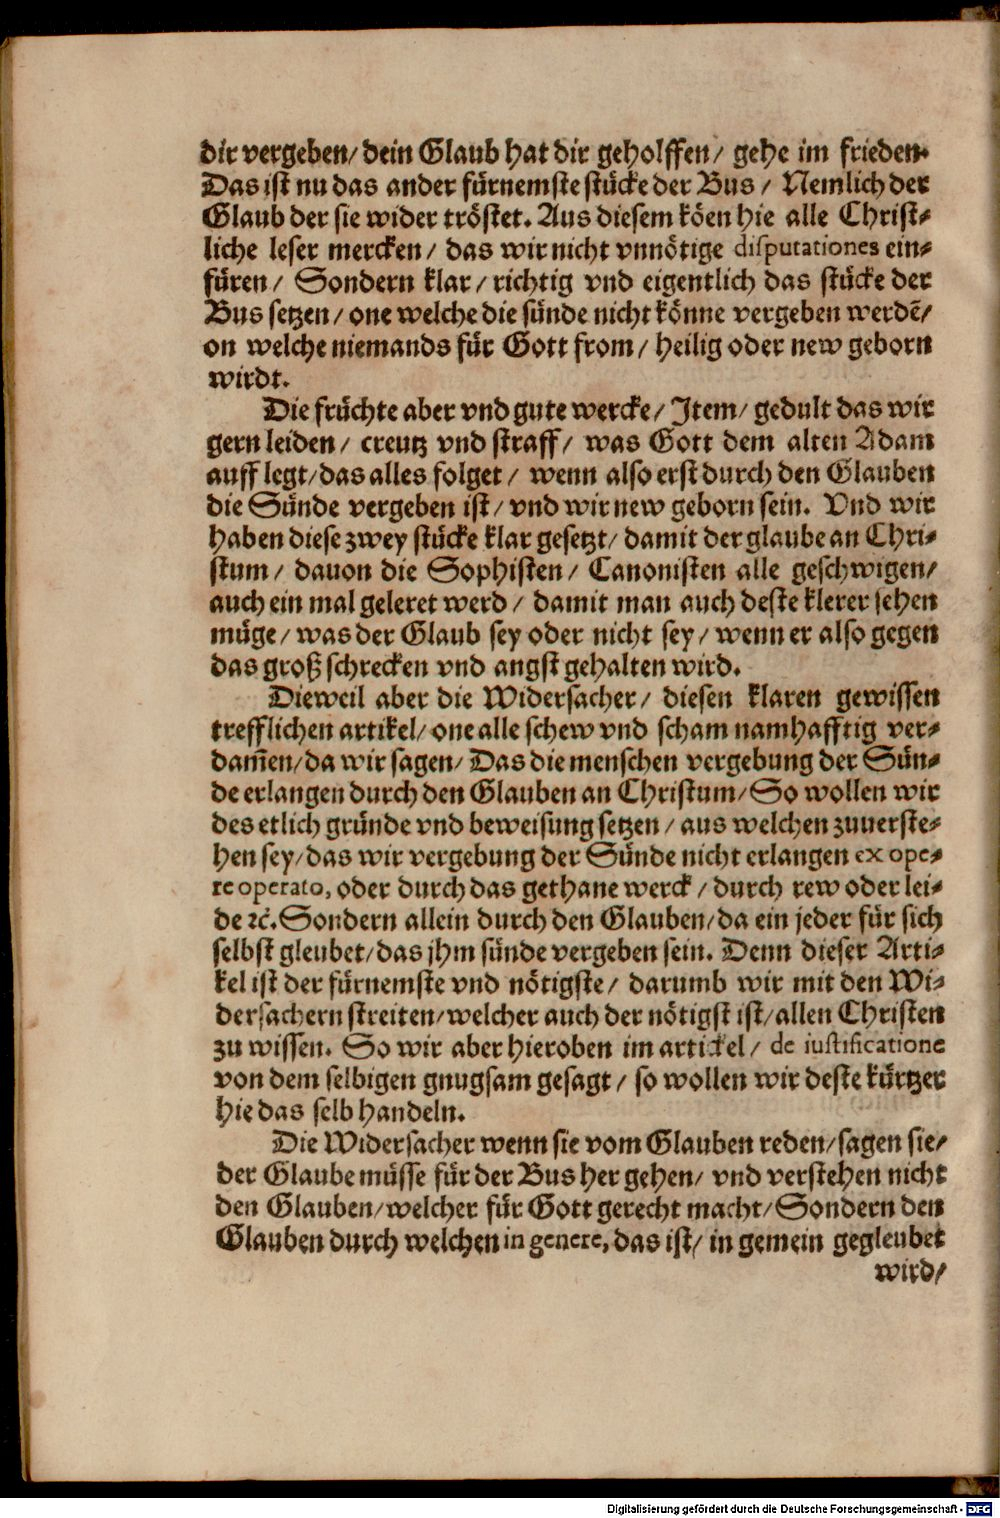 dir vergeben/ dein Glaub hat dir geholffen/ gehe im frieden.
Das ist nu das ander fürnemste stücke der Bus/ Nemlich der
Glaub der sie wider tröstet. Aus diesem köen hie alle Christ-
liche leser mercken/ das wir nicht vnnötige disputationes ein-
füren/ Sondern klar/ richtig vnd eigentlich das stücke der
Bus setzen/ one welche die sünde nicht könne vergeben werdē/
on welche niemands für Gott from/ heilig oder new geborn
wirdt.
Die früchte aber vnd gute wercke/ Item/ gedult das wir
gern leiden/ creutz vnd straff/ was Gott dem alten Adam
auff legt/ das alles folget/ wenn also erst durch den Glauben
die Sünde vergeben ist/ vnd wir new geborn sein. Vnd wir
haben diese zwey stücke klar gesetzt/ damit der glaube an Chri-
stum/ dauon die Sophisten/ Canonisten alle geschwigen/
auch ein mal geleret werd/ damit man auch deste klerer sehen
müge/ was der Glaub sey oder nicht sey/ wenn er also gegen
das groß schrecken vnd angst gehalten wird.
Dieweil aber die Widersacher/ diesen klaren gewissen
trefflichen artikel/ one alle schew vnd scham namhafftig ver-
dam̄en/ da wir sagen/ Das die menschen vergebung der Sün-
de erlangen durch den Glauben an Christum/ So wollen wir
des etlich gründe vnd beweisung setzen/ aus welchen zuuerste-
hen sey/ das wir vergebung der Sünde nicht erlangen ex ope-
re operato, oder durch das gethane werck/ durch rew oder lei-
de ꝛc̃. Sondern allein durch den Glauben/ da ein jeder für sich
selbst gleubet/ das jhm sünde vergeben sein. Denn dieser Arti-
kel ist der fürnemste vnd nötigste/ darumb wir mit den Wi-
dersachern streiten/ welcher auch der nötigst ist/ allen Christen
zu wissen. So wir aber hieroben im artickel/ de iustificatione
von dem selbigen gnugsam gesagt/ so wollen wir deste kürtzer
hie das selb handeln.
Die Widersacher wenn sie vom Glauben reden/ sagen sie/
der Glaube müsse für der Bus her gehen/ vnd verstehen nicht
den Glauben/ welcher für Gott gerecht macht/ Sondern den
Glauben durch welchen in genere, das ist/ in gemein gegleubet
wird/
Digitalisierung gefördert durch die Deutsche Forschungsgemeinschaft - DFG